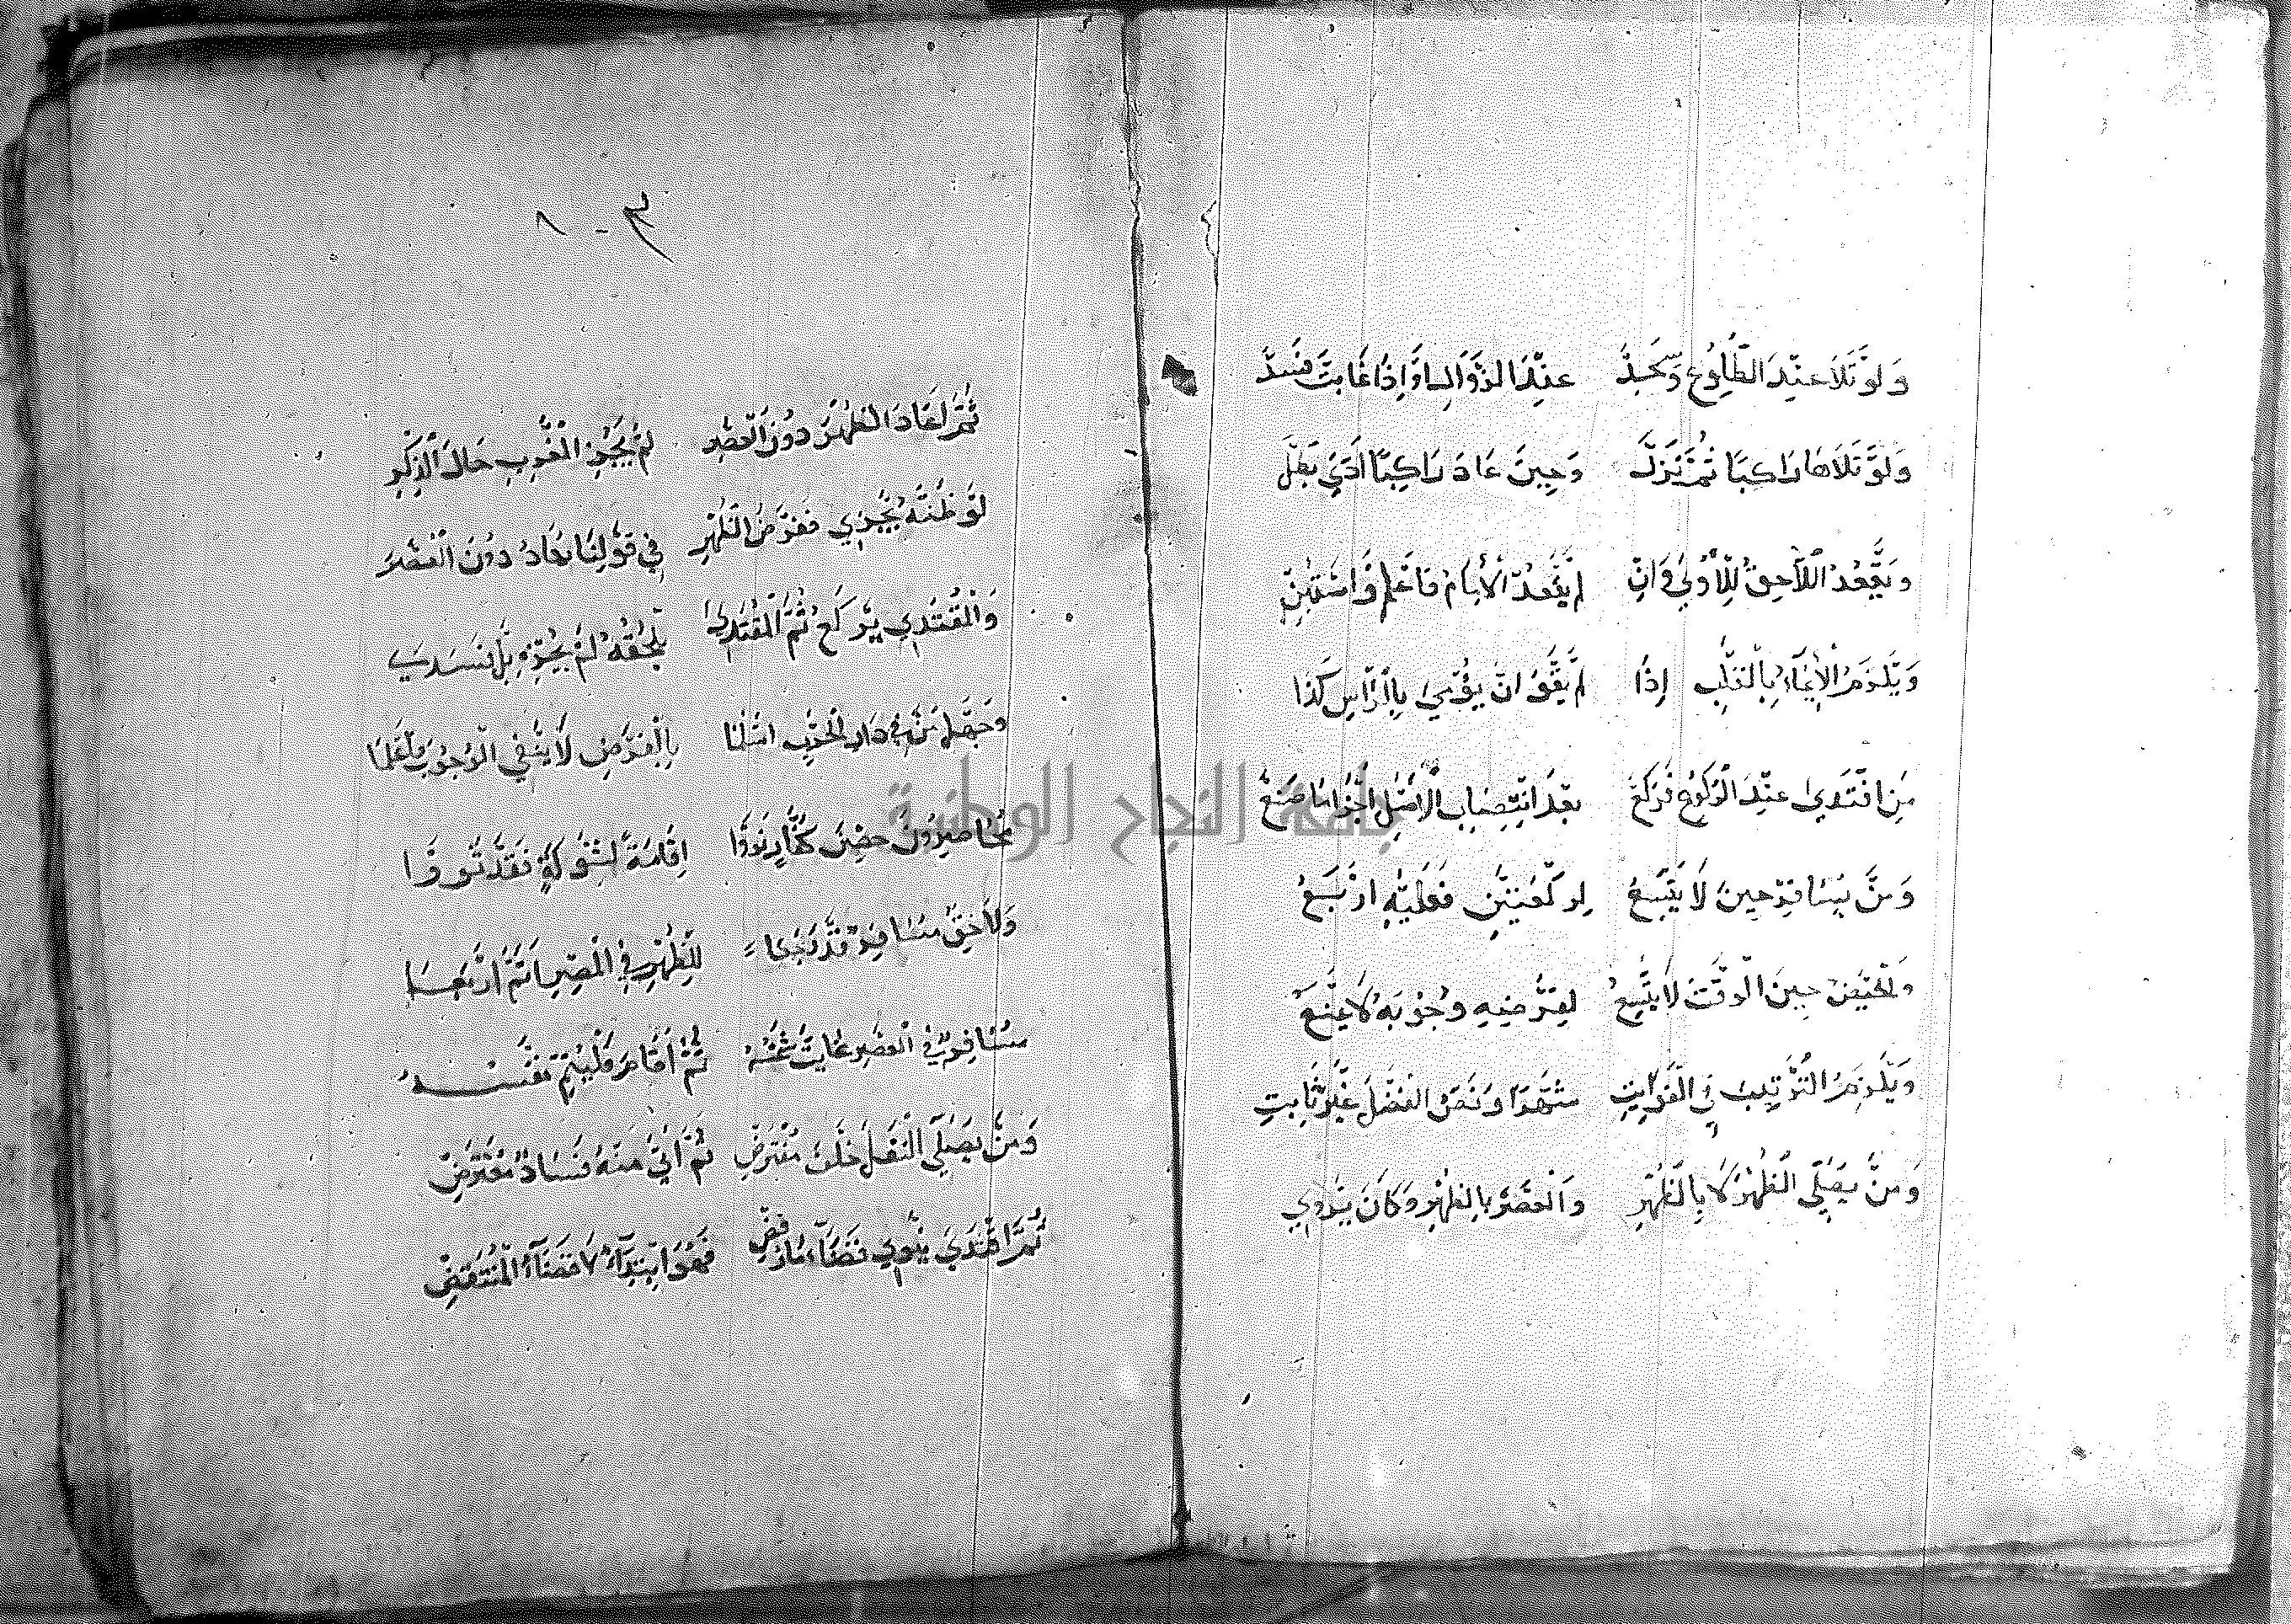 وَلَوْ تَلَا عِنْدَ الطُّلُوعِ وَسَجَدْ عِنْدَ الزَّوَالِ أَوْ إِذَا غَابَتْ فَسَدْ
وَلَوْ تَلَاهَا رَاكِبًا ثُمَّ نَزَلْ وَحِينَ عَادَ رَاكِبًا أَدَّى بَطَلْ
وَيَقْعُدُ اللَّاحِقُ لِلْأُولَى وَإِنْ لَمْ يَقْعُدِ الْإِمَامُ فَاعْلَمْ وَاسْتَبِنْ
وَيَلْزَمُ الْإِيمَاءُ بِالْقَلْبِ إِذَا لَمْ يَقْوَ أَنْ يُؤْمِيَ بِالرَّأْسِ كَذَا
مَنِ اقْتَدَى عِنْدَ الرُّكُوعِ فَرَكَعْ بَعْدَ انْتِصَابِ الْأَصْلِ أَجْزَا مَا صَنَعْ
وَمَنْ يُسَافِرْ حِينَ لَا يَتَّسِعُ لِرَكْعَتَيْنِ فَعَلَيْهِ أَرْبَعُ
وَالْحَيْضُ حِينَ الْوَقْتُ لَا يَتَّسِعُ لِفَرْضِهِ وُجُوبَهُ لَا يَمْنَعُ
وَيَلْزَمُ التَّرْتِيبُ فِي الْفَوَائِتِ سَهْوًا وَنَصُّ الْفَضْلِ غَيْرُ ثَابِتِ
وَمَنْ يُصَلِّي الظُّهْرَ لَا بِالطُّهْرِ وَالْعَصْرَ بِالطُّهْرِ وَكَانَ يَدْرِي
٣ - ٨
ثُمَّ أَعَادَ الظُّهْرَ دُونَ الْعَصْرِ لَمْ يَجُزِ الْمَغْرِبُ حَالَ الذِّكْرِ
لَوْ ظَنَّهُ يُجْزِي فَفَرْضُ الظُّهْرِ فِي قَوْلِنَا يُعَادُ دُونَ الْعَصْرِ
وَالْمُقْتَدِي يَرْكَعُ ثُمَّ الْمُقْتَدَى يَلْحَقُهُ لَمْ يُجْزِهِ بَلْ فَسَدَا
وَجَهْلُ مَنْ فِي دَارِ الْحَرْبِ أَسْلَمَا بِالْفَرْضِ لَا يَنْفِي الْوُجُوبَ فَاعْلَمَا
مُحَاصِرُونَ حِصْنَ كُفَّارٍ نَوَوْا إِقَامَةً لِشَوْكَةٍ فَقَدْ
وَلَاحِقٌ مُسَافِرٌ قَدْ لِلظُّهْرِ فِي الْمِصْرِ أَتَمَّ أَرْبَعَا
مُسَافِرٌ فِي الْعَصْرِ غَابَتْ شَمْسُهُ ثُمَّ أَقَامَ فَلْيُتِمَّ نَفْسُهُ
وَمَنْ يُصَلِّي النَّفْلَ خَلْفَ مُفْتَرِضْ ثُمَّ أَتَى مِنْهُ فَسَادٌ مُعْتَرِضْ
ثُمَّ اقْتَدَى يَنْوِي قَضَاءَ مَا رُفِضْ فَهْوَ ابْتِدَاءٌ لَا قَضَاءُ الْمُنْتَقِضْ
جامعة النجاح الوطنية